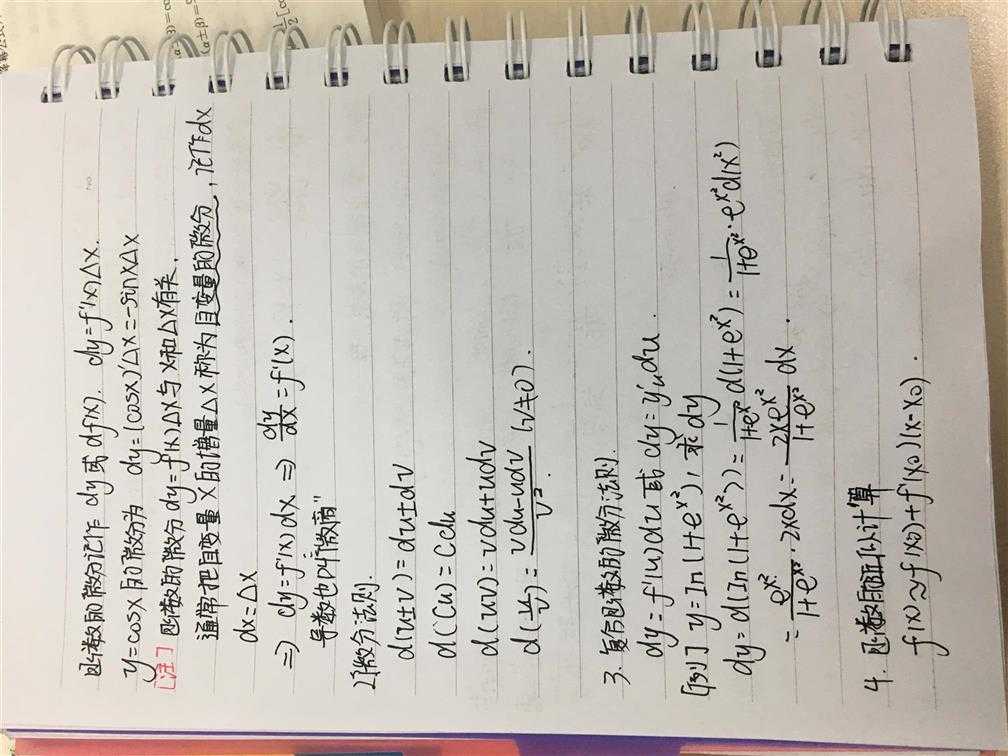 函数的微分记作 dy 或 df(x). dy=f'(x)Δx.
y=cosx 的微分为 dy=(cosx)'Δx=-sinxΔx
[注] 函数的微分 dy=f'(x)Δx 与 x 和 Δx 有关.
通常把自变量 x 的增量 Δx 称为自变量的微分, 记作 dx
dx=Δx
⇒ dy=f'(x)dx ⇒ dy/dx=f'(x).
导数也叫"微商"
2. 微分法则.
d(u±v)=du±dv
d(Cu)=Cdu
d(uv)=vdu+udv
d(u/v)=(vdu-udv)/v² (v≠0).
3. 复合函数的微分法则.
dy=f'(u)du 或 dy=y'u du.
[例] y=ln(1+e^x²), 求 dy
dy=d(ln(1+e^x²))=1/(1+e^x²) d(1+e^x²)=1/(1+e^x²)·e^x² d(x²)
=e^x²/(1+e^x²)·2xdx=2xe^x²/(1+e^x²) dx.
4. 函数的近似计算
f(x)≈f(x0)+f'(x0)(x-x0)